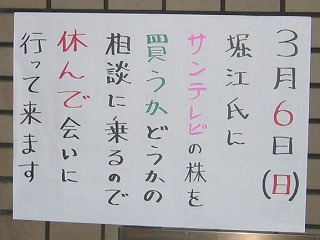 3月6日(日)
堀江氏に
サンテレビの株を
買うかどうかの
相談に乗るので
休んで会いに
行って来ます